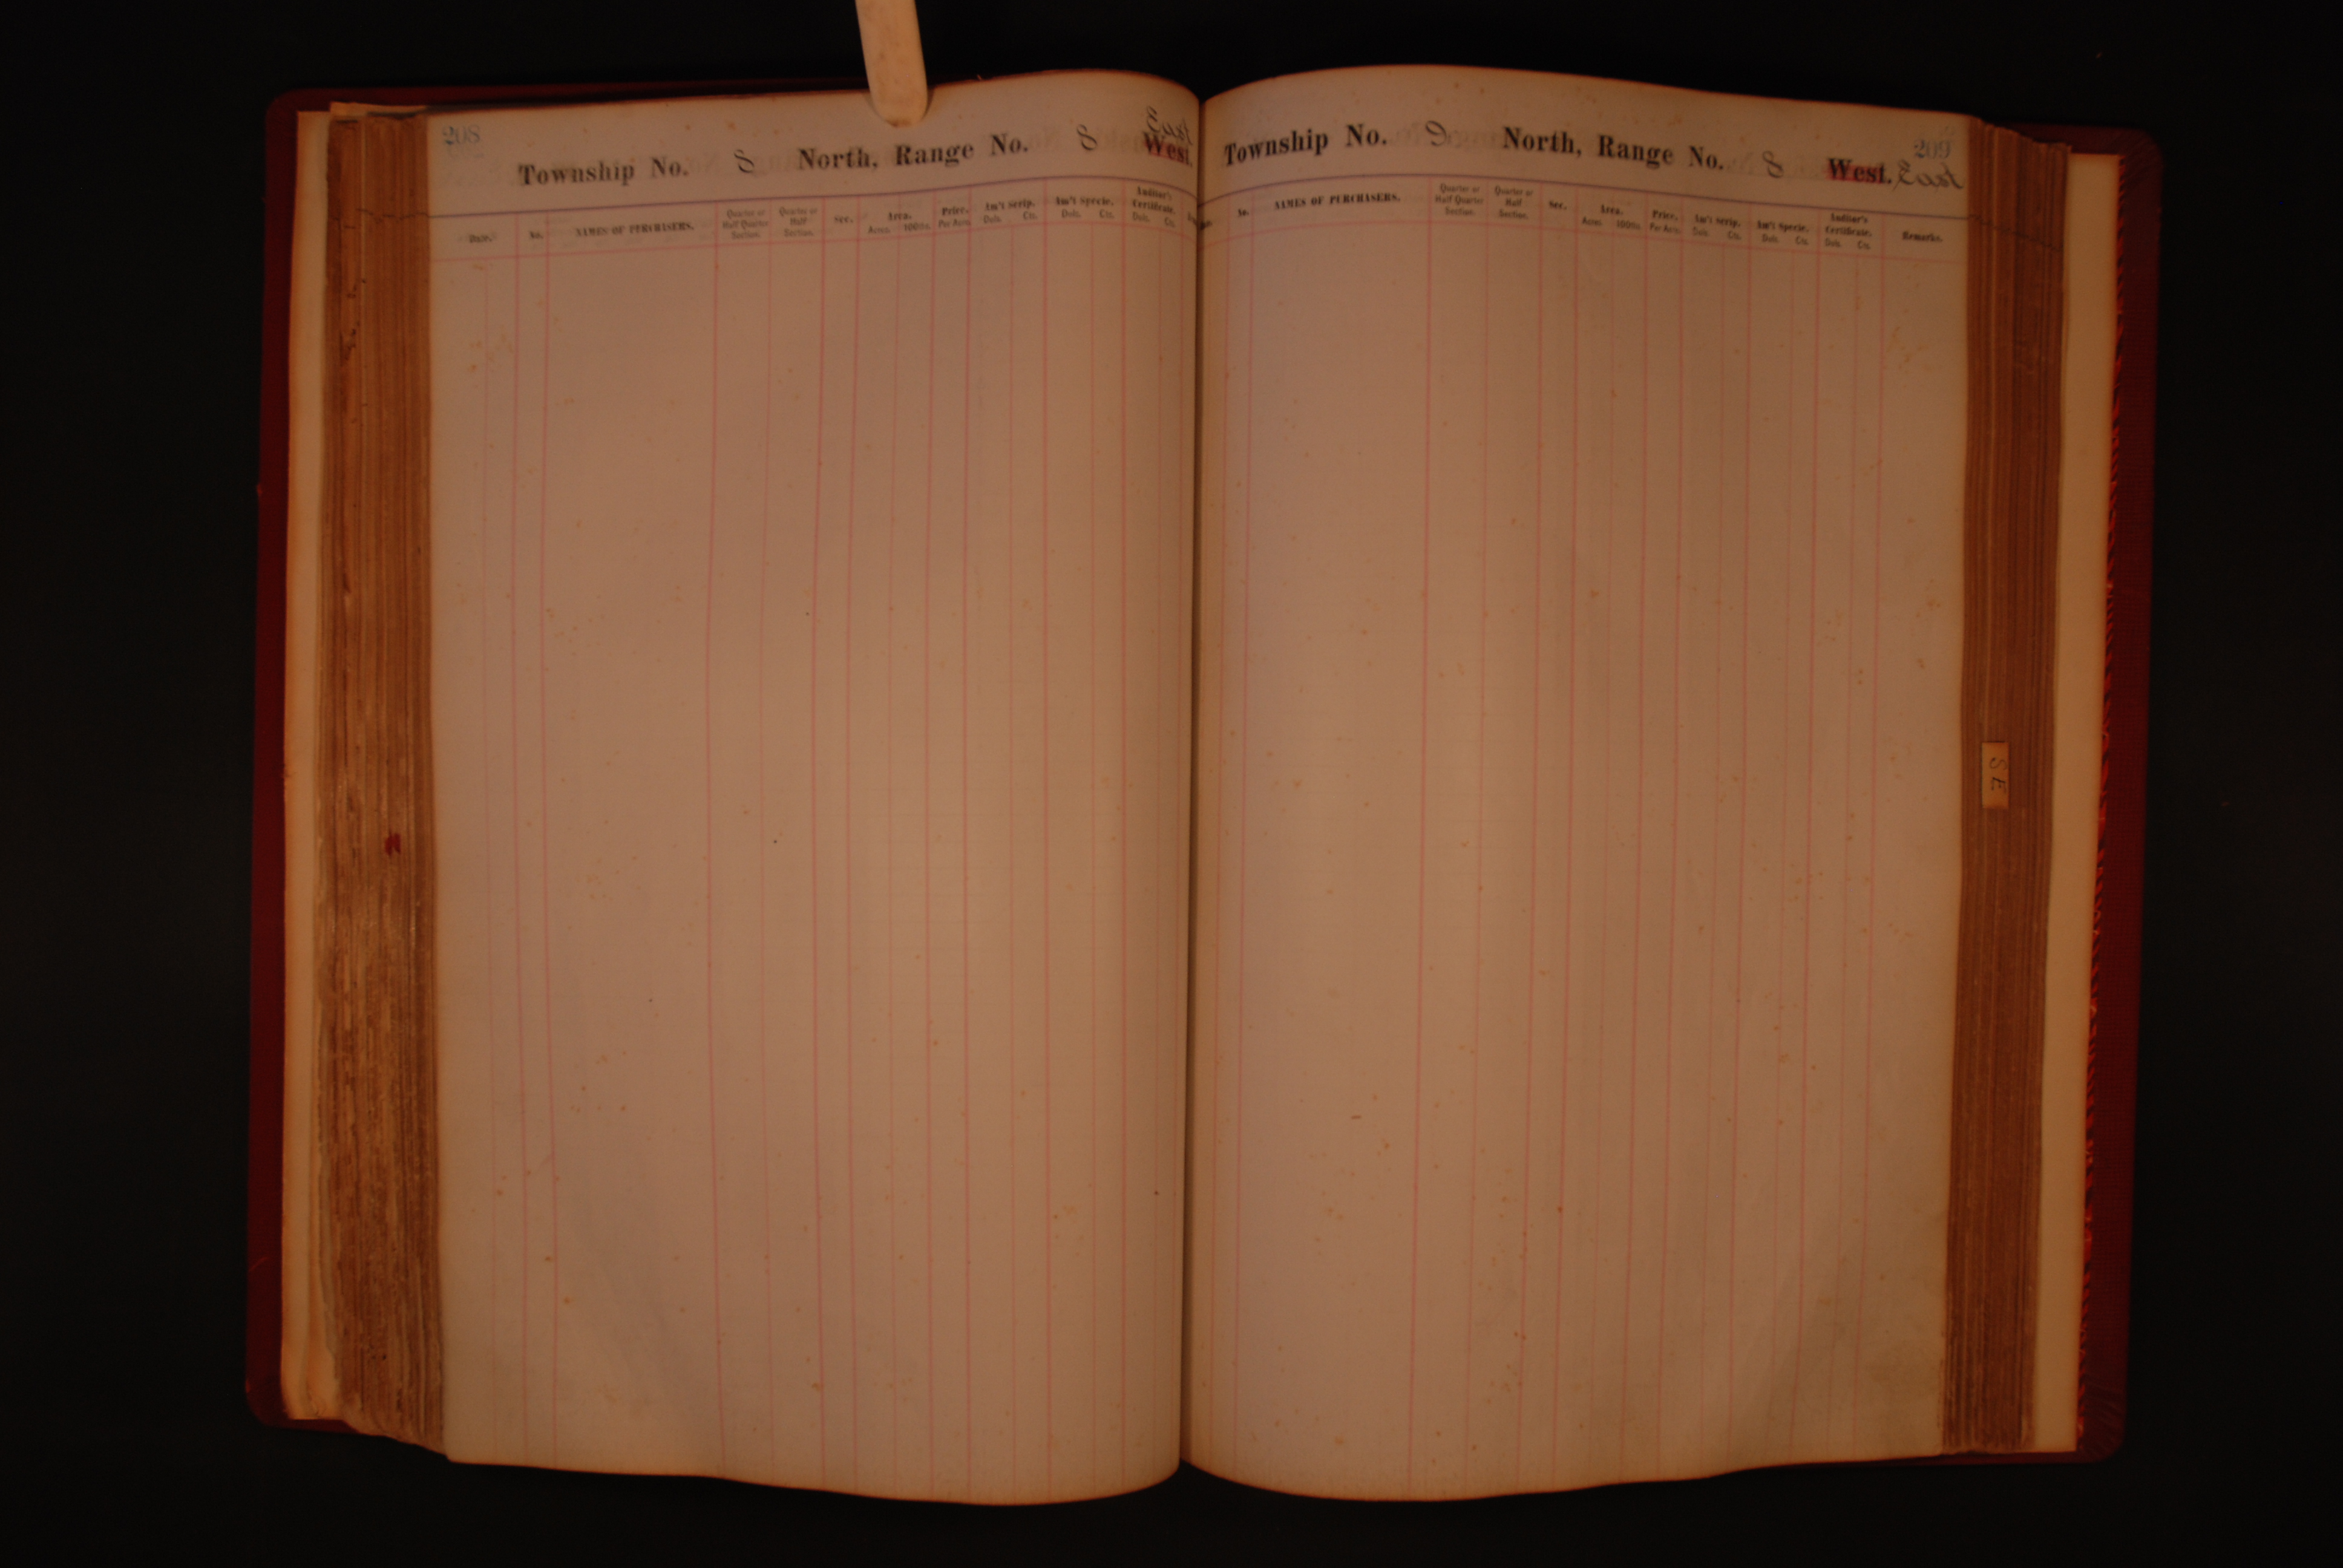 208
Township No. 8 North, Range No. 8 West. East
Date. No. NAMES OF PURCHASERS. Quarter or Half Quarter Section. Quarter or Half Section. Sec. Area. Acres. 100ths. Price. Per Acre. Am't Scrip. Dols. Cts. Am't Specie. Dols. Cts. Auditor's Certificate. Dols. Cts.
209
Township No. 9 North, Range No. 8 West. East
No. NAMES OF PURCHASERS. Quarter or Half Quarter Section. Quarter or Half Section. Sec. Area. Acres. 100ths. Price. Per Acre. Am't Scrip. Dols. Cts. Am't Specie. Dols. Cts. Auditor's Certificate. Dols. Cts. Remarks.
S E